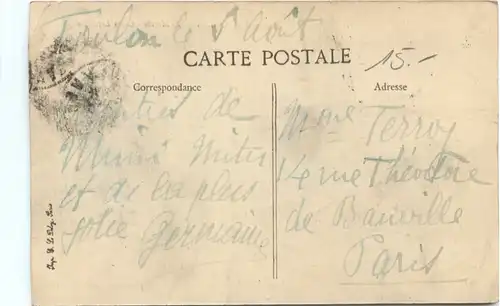 Toulon le 8 Août
CARTE POSTALE
15.-
Correspondance
Adresse
de
Mimi
et de la plus
jolie Germaine
Mme Terroy
14 rue Théodore
de Banville
Paris